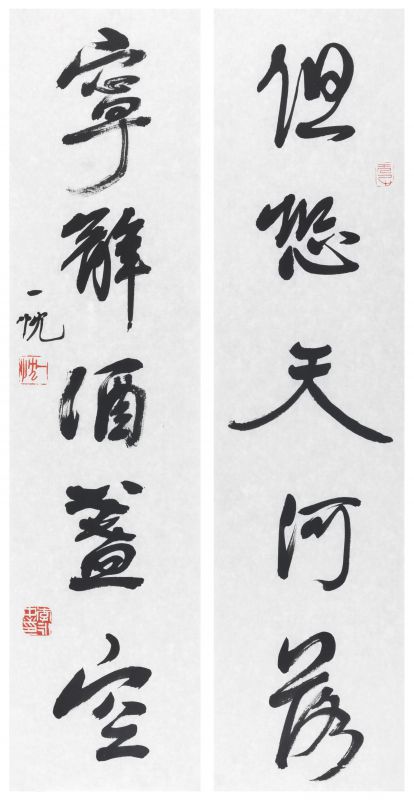 但恐天河落
寧辭酒盞空
一忱